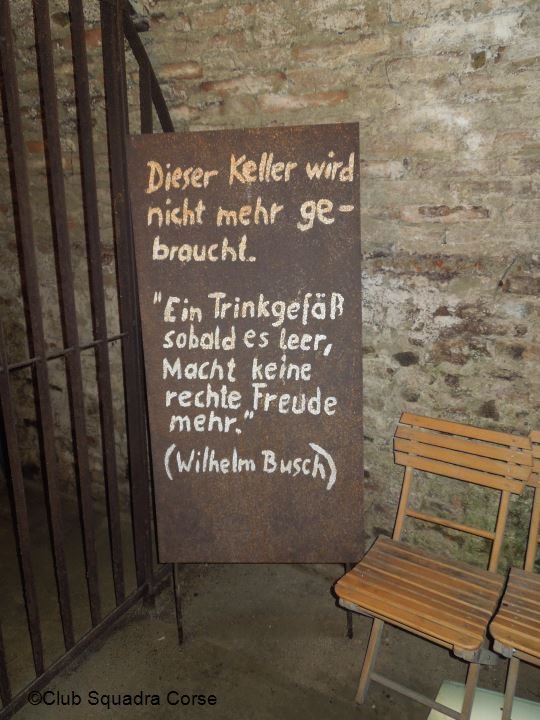 Dieser Keller wird
nicht mehr ge-
braucht.
"Ein Trinkgefäß
sobald es leer,
Macht keine
rechte Freude
mehr."
(Wilhelm Busch)
©Club Squadra Corse